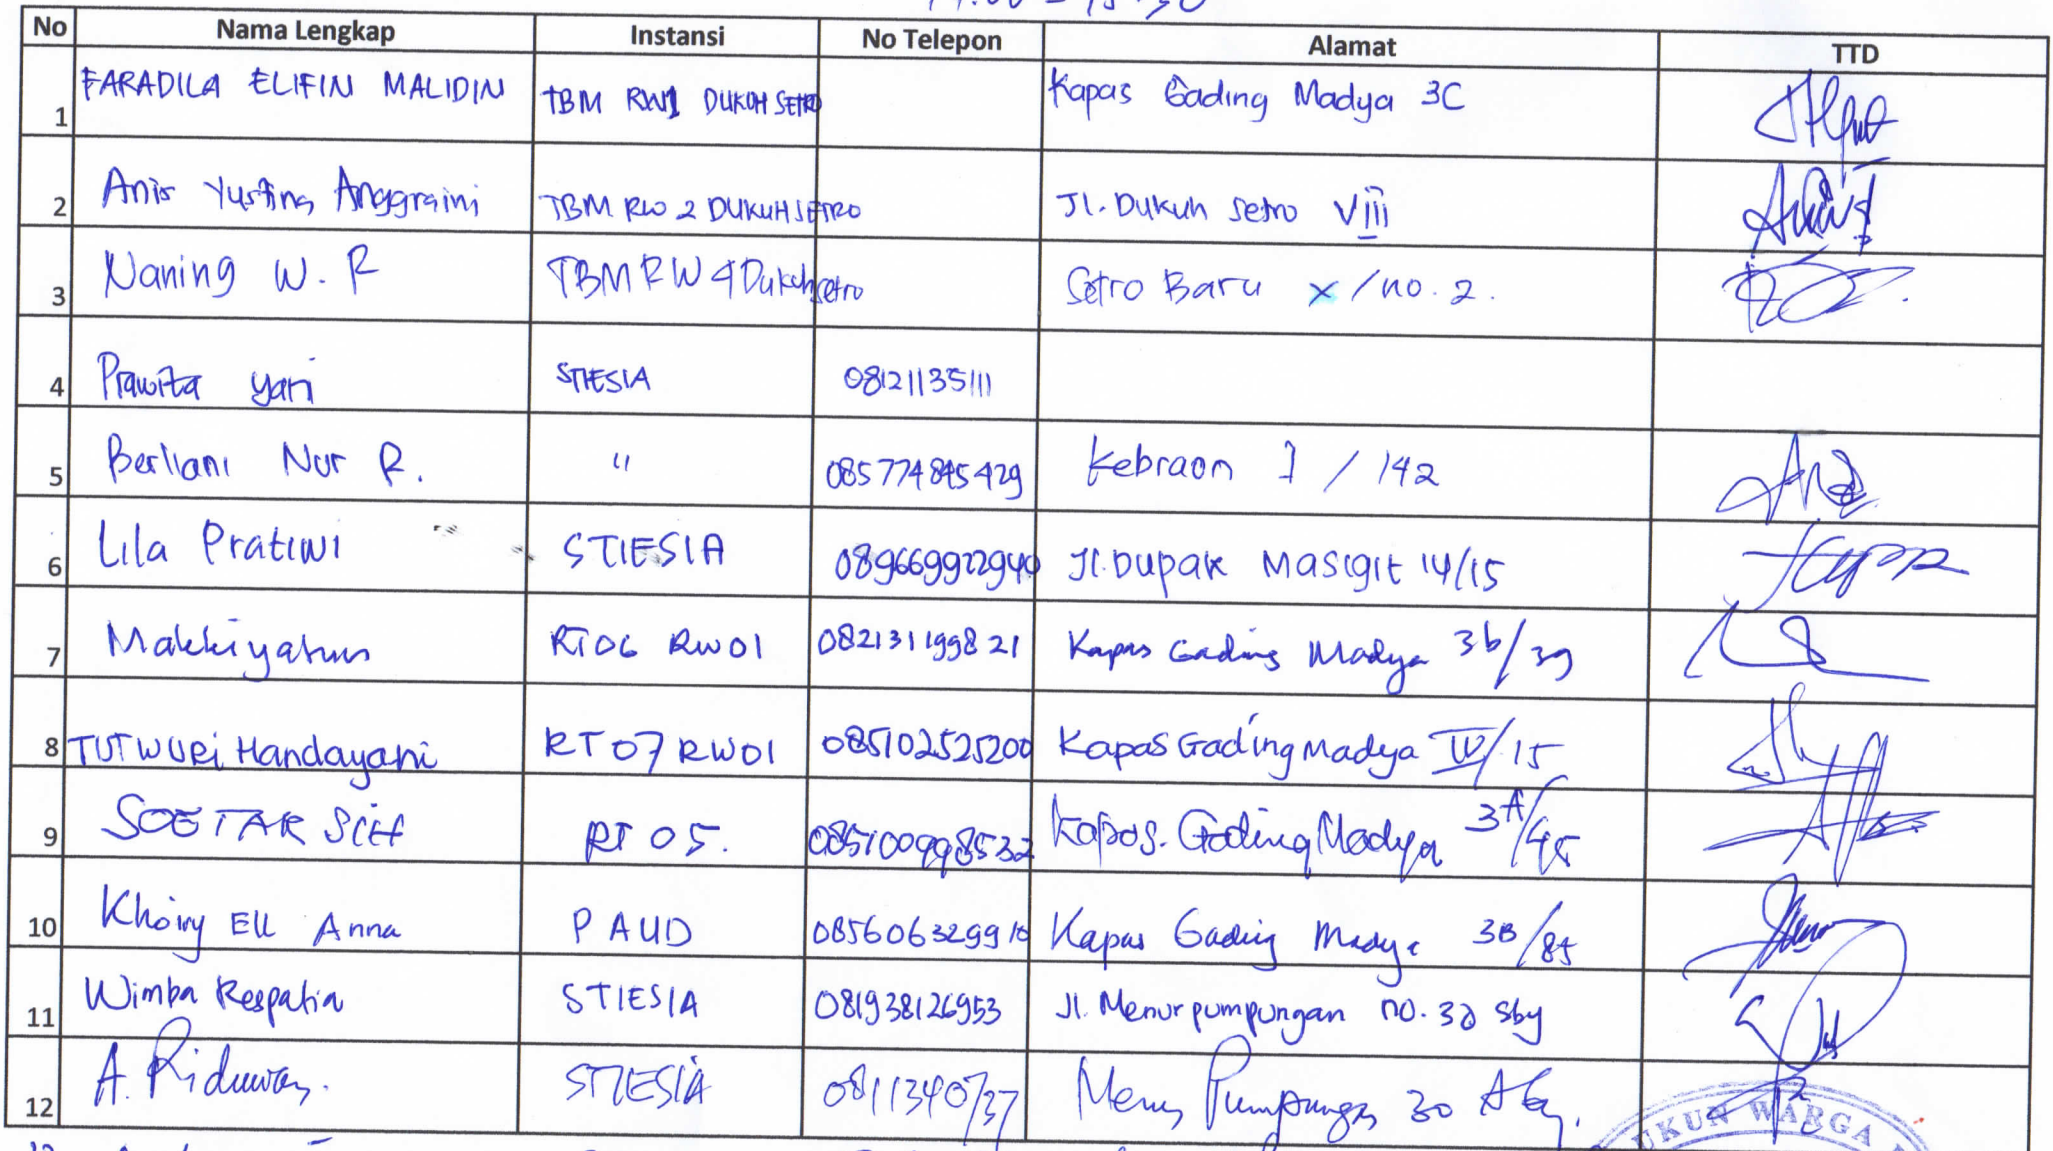 14.00 - 15.30
No Nama Lengkap Instansi No Telepon Alamat TTD
1 FARADILA ELIFIN MALIDIN TBM RW1 DUKUH SETRO Kapas Gading Madya 3C
2 Anis Yustina Anggraini TBM RW 2 DUKUH SETRO Jl. Dukuh Setro VIII
3 Naning W. R TBM RW 4 Dukuh setro Setro Baru X / no. 2.
4 Prawita Yani STIESIA 08121135111
5 Berliani Nur R. " 085774845429 Kebraon 1 / 142
6 Lila Pratiwi STIESIA 089669922940 Jl. Dupak Masigit 14/15
7 Makkiyatun RT06 RW01 082131199821 Kapas Gading Madya 3b/39
8 TUTWURi Handayani RT 07 RW01 085102525200 Kapas Gading Madya IV/15
9 SOETAR RT 05. 085100998532 Kapas. Gading Madya 3A/45
10 Khoiry Ell Anna PAUD 085606329910 Kapas Gading Madya 3B/85
11 Wimba Respatia STIESIA 081938126953 Jl. Menur pumpungan no. 30 Sby
12 A. Riduwan. STIESIA 0811340737 Menur Pumpungan 30 Sby.
UKUN WARGA